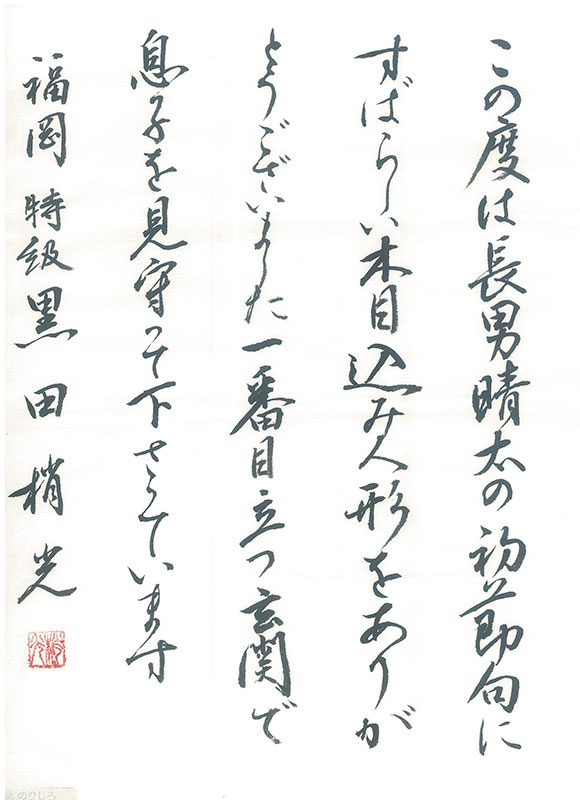 この度は長男晴太の初節句に
すばらしい木目込み人形をありが
とうございました一番目立つ玄関で
息子を見守って下さっています
福岡 特級 黒田梢光
のりしろ